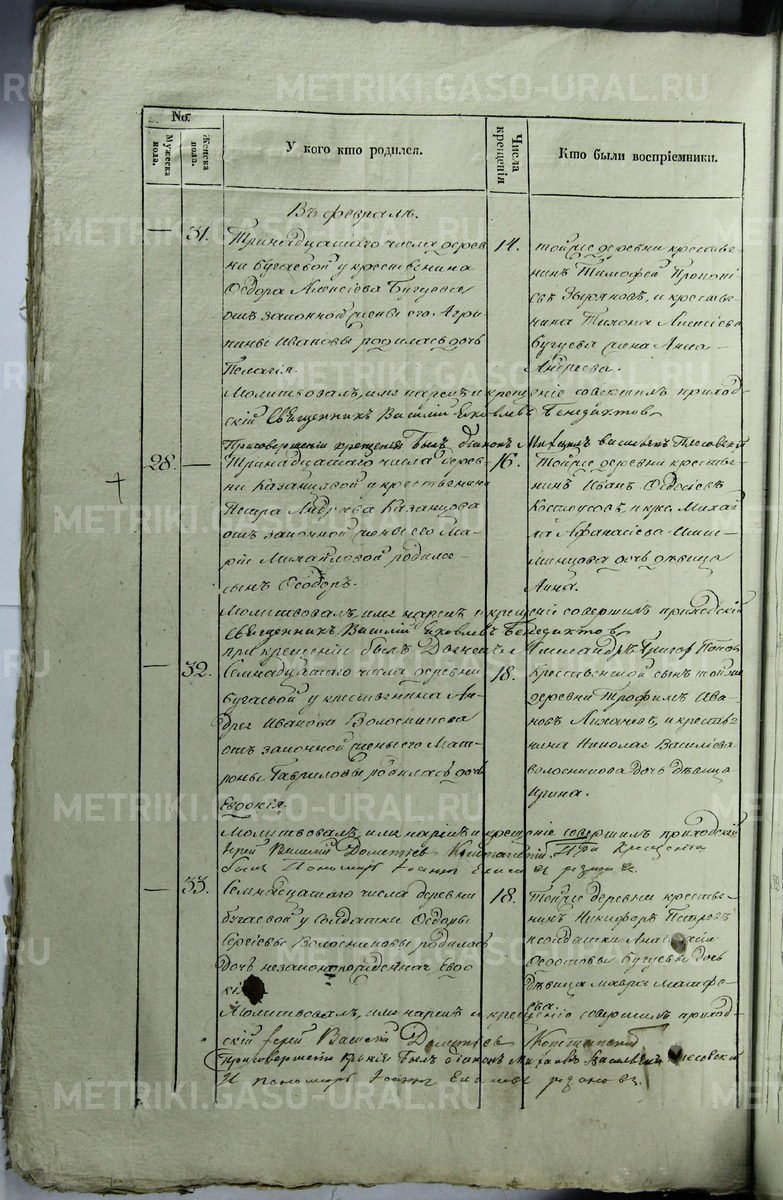 METRIKI.GASO-URAL.RU
№.
Мужеска пола.
Женска пола.
У кого кто родился.
Числа крещенія
Кто были воспріемники.
Въ февралѣ.
— 31.
Тринадцатаго числа дерев-
ни Бугаевой у крестьянина
Ѳедора Алексіева Бугуева
отъ законной жены его Агри-
пины Ивановы родилась дочь
Пелагія.
14.
тойже деревни крестья-
нинъ Тимофей Прокопі-
евъ Зыряновъ, и крестья-
нина Тихона Алексіева
Бугуева жена Анна
Андреева.
Молитвовалъ, имя нарекъ и крещеніе совершилъ приход-
скій Священникъ Василій Яковлевъ Бенедиктовъ
При совершеніи крещенія былъ діаконъ Васильевъ
28. —
Тринадцатаго числа дерев-
ни Казанцовой у крестьянина
Петра Андреева Казанцова
отъ законной жены его Ма-
ріи Михайловой родился
сынъ Ѳеодоръ.
16.
Тойже деревни крестья-
нинъ Иванъ Ѳедосіевъ
и крес. Михай-
ла Афанасіева
дочь дѣвица
Анна.
Молитвовалъ, имя нарекъ и крещеніе совершилъ приходскій
Священникъ Василій Яковлевъ Бенедиктовъ
при крещеніи былъ Григор Поповъ
— 32.
Семнадцатаго числа деревни
Бугаевой у крестьянина Ан-
дрея Иванова Волосникова
отъ законной жены его Мат-
роны Гавриловы родилась дочь
Евдокія.
18.
Крестьянской сынъ тойже
деревни Трофимъ Ива-
новъ Лихачевъ, и крестья-
нина Николая Василіева
Волосникова дочь дѣвица
Ирина.
Молитвовалъ, имя нарекъ и крещеніе совершилъ приходскій
Іерей Василій Дометіевъ При крещеніи
былъ Пономарь Іоаннъ
— 33.
Семнадцатаго числа деревни
Бугаевой у солдатки Ѳедоры
Сергіевы Волосниковы родилась
дочь незаконнорожденная Евдо-
кія
18.
Тойже деревни крестья-
нинъ Никифоръ Петровъ
и солдатки
Бугуевы дочь
дѣвица Мавра Матфе-
ева.
Молитвовалъ, имя нарекъ и крещеніе совершилъ приход-
скій Іерей Василій Дометіевъ
При совершеніи былъ діаконъ
И пономарь Іоаннъ